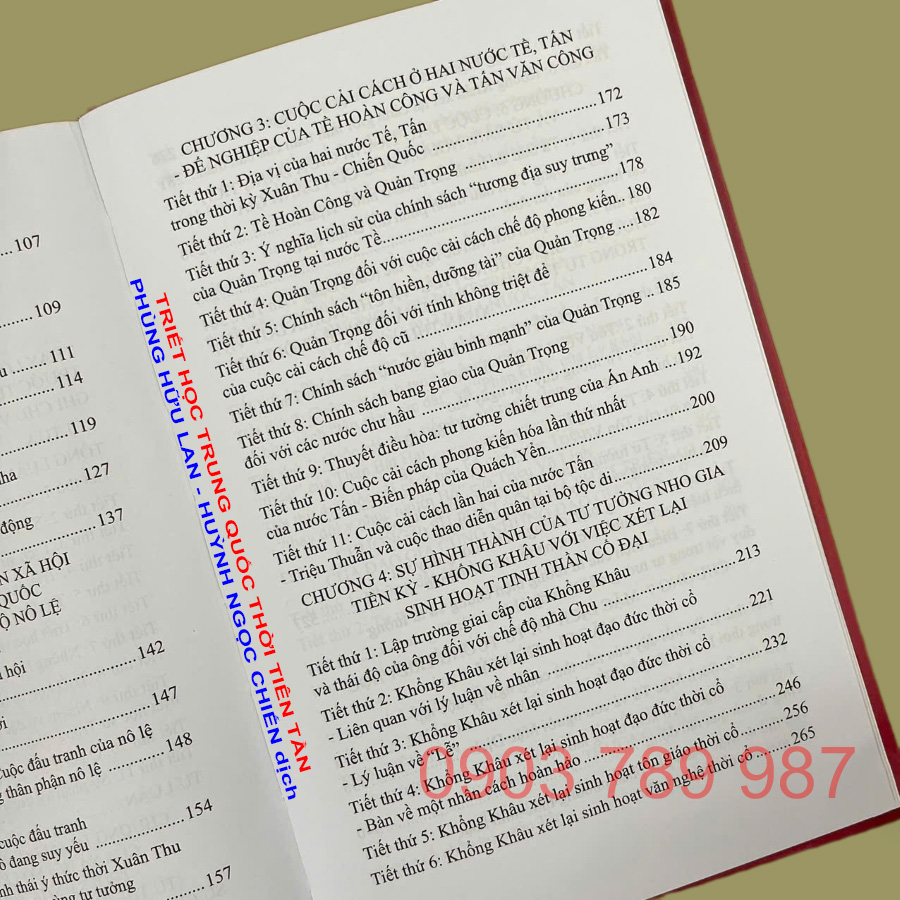 107
109
111
114
119
127
động
137
N XÃ HỘI
QUỐC
Ộ NÔ LỆ
142
hội
147
cuộc đấu tranh của nô lệ
thân phận nô lệ 148
cuộc đấu tranh
đang suy yếu 154
thái ý thức thời Xuân Thu
tư tưởng 157
TRIẾT HỌC TRUNG QUỐC THỜI TIÊN TẦN
PHÙNG HỮU LAN - HUỲNH NGỌC CHIẾN dịch
CHƯƠNG 3: CUỘC CẢI CÁCH Ở HAI NƯỚC TỀ, TẤN
- ĐẾ NGHIỆP CỦA TỀ HOÀN CÔNG VÀ TẤN VĂN CÔNG
Tiết thứ 1: Địa vị của hai nước Tế, Tấn
trong thời kỳ Xuân Thu - Chiến Quốc 172
Tiết thứ 2: Tề Hoàn Công và Quản Trọng 173
Tiết thứ 3: Ý nghĩa lịch sử của chính sách “tương địa suy trưng”
của Quản Trọng tại nước Tề 178
Tiết thứ 4: Quản Trọng đối với cuộc cải cách chế độ phong kiến.. 180
Tiết thứ 5: Chính sách “tôn hiền, dưỡng tài” của Quản Trọng .... 182
Tiết thứ 6: Quản Trọng đối với tính không triệt để
của cuộc cải cách chế độ cũ 184
Tiết thứ 7: Chính sách “nước giàu binh mạnh” của Quản Trọng .. 185
Tiết thứ 8: Chính sách bang giao của Quản Trọng
đối với các nước chư hầu 190
Tiết thứ 9: Thuyết điều hòa: tư tưởng chiết trung của Án Anh ... 192
Tiết thứ 10: Cuộc cải cách phong kiến hóa lần thứ nhất
của nước Tấn - Biến pháp của Quách Yển 200
Tiết thứ 11: Cuộc cải cách lần hai của nước Tấn
- Triệu Thuẫn và cuộc thao diễn quân tại bộ tộc di 209
CHƯƠNG 4: SỰ HÌNH THÀNH CỦA TƯ TƯỞNG NHO GIA
TIỀN KỲ - KHỔNG KHÂU VỚI VIỆC XÉT LẠI
SINH HOẠT TINH THẦN CỔ ĐẠI
Tiết thứ 1: Lập trường giai cấp của Khổng Khâu
và thái độ của ông đối với chế độ nhà Chu 213
Tiết thứ 2: Khổng Khâu xét lại sinh hoạt đạo đức thời cổ
- Liên quan với lý luận về nhân 221
Tiết thứ 3: Khổng Khâu xét lại sinh hoạt đạo đức thời cổ
- Lý luận về “Lễ” 232
Tiết thứ 4: Khổng Khâu xét lại sinh hoạt đạo đức thời cổ
- Bàn về một nhân cách hoàn hảo 246
Tiết thứ 5: Khổng Khâu xét lại sinh hoạt tôn giáo thời cổ 256
Tiết thứ 6: Khổng Khâu xét lại sinh hoạt văn nghệ thời cổ 265
0903 789 987